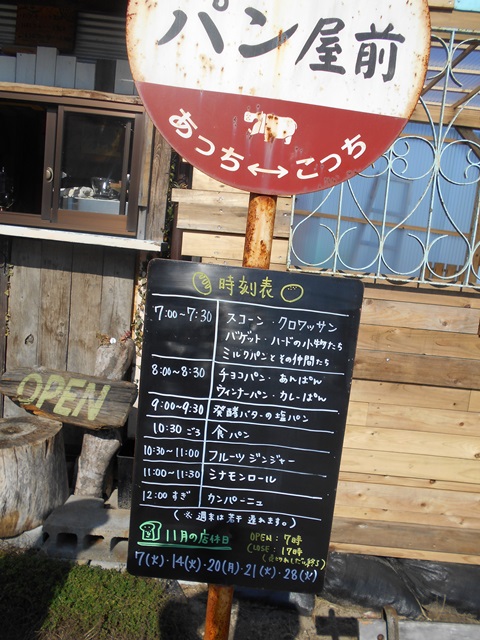 パン屋前
あっち↔こっち
OPEN
時刻表
7:00~7:30 スコーン・クロワッサン
バゲット・ハードの小物たち
ミルクパンとその仲間たち
8:00~8:30 チョコパン・あんぱん
ウィンナーパン・カレーぱん
9:00~9:30 発酵バターの塩パン
10:30 ごろ 食パン
10:30~11:00 フルーツジンジャー
11:00~11:30 シナモンロール
12:00 すぎ カンパーニュ
(※ 週末は若干遅れます。)
11月の店休日
OPEN:7時
CLOSE:17時
7(火)・14(火)・20(月)・21(火)・28(火)